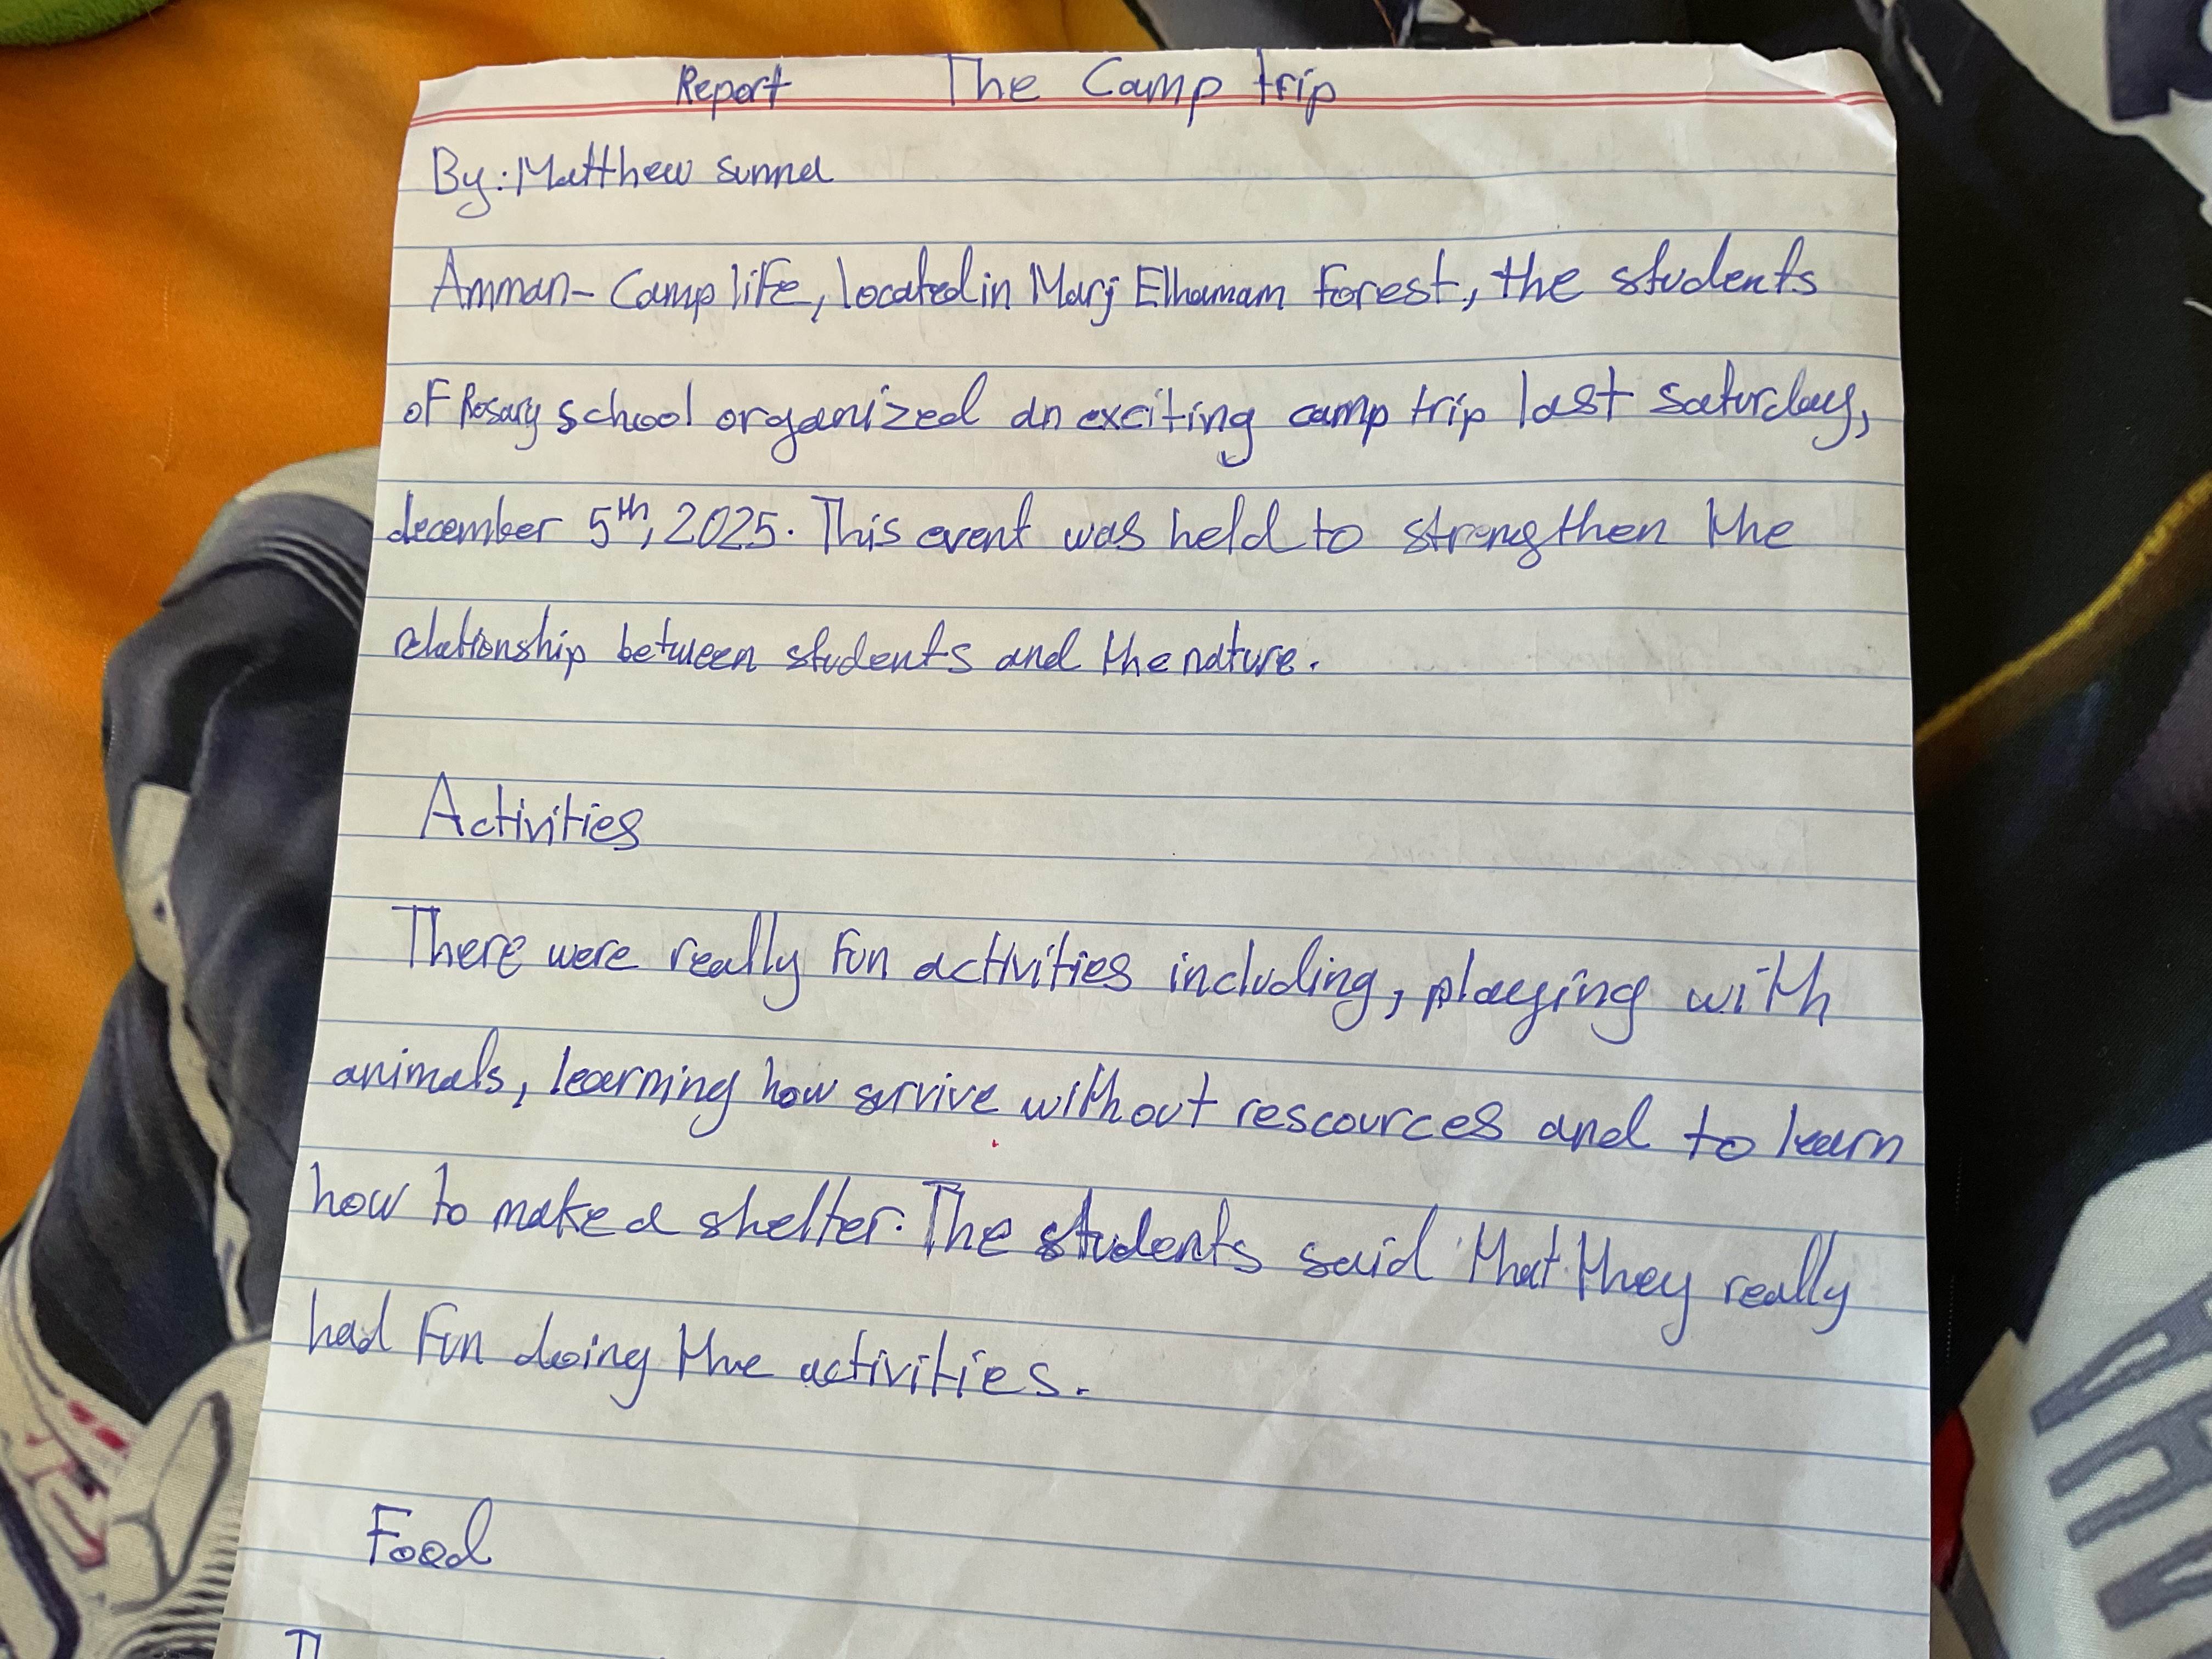 Report The Camp trip
By: Matthew sunna
Amman- Camp life, located in Marj Elhamam Forest, the students
of Rosary school organized an exciting camp trip last saturday,
december 5th, 2025. This event was held to strengthen the
relationship between students and the nature.
Activities
There were really fun activities including, playing with
animals, learning how survive without rescources and to learn
how to make a shelter. The students said that they really
had fun doing the activities.
Food